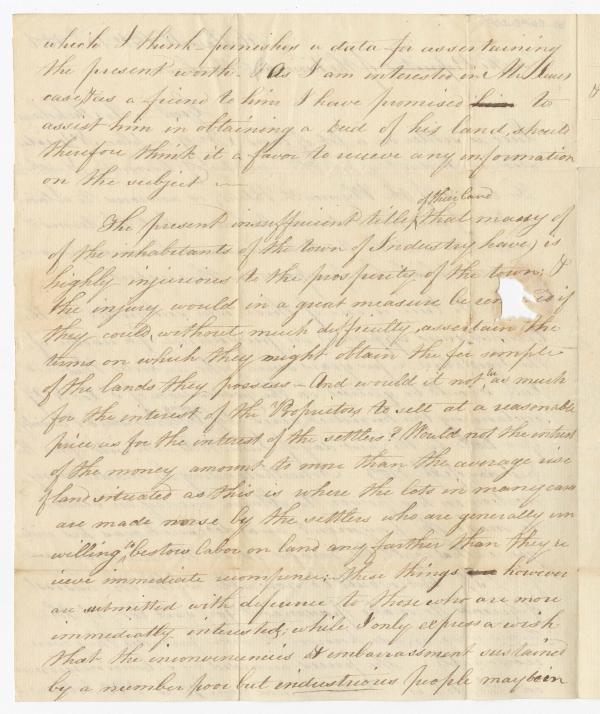 which I think furnishes a data for assertaining
the present worth. & As I am interested in Mr
case, & as a friend to him I have promised him to
assist him in obtaining a Deed of his land, should
therefore think it a favor to receive any information
on the subject —
of their land
The present insufficient title, that many of
of the inhabitants of the town of Industry have, is
highly injurious to the prosperity of the town; &
the injury would in a great measure be if
they could, without much difficulty, assertain the
terms on which they might obtain the fee simple
of the lands they possess — And would it not be as much
for the interest of the Proprietors to sell at a reasonable
price, as for the interest of the settlers? Would not the interest
of the money amount to more than the average rise
of land situated as this is where the lots in many cases
are made worse by the settlers who are generally un
willing to bestow labor on land any farther than they re
ieve immediate recompence; these things however
are submitted with defference to those who are more
immediatly interested; while I only express a wish
that the inconveniencies & embarrassment sustained
by a number poor but industrious people may be in